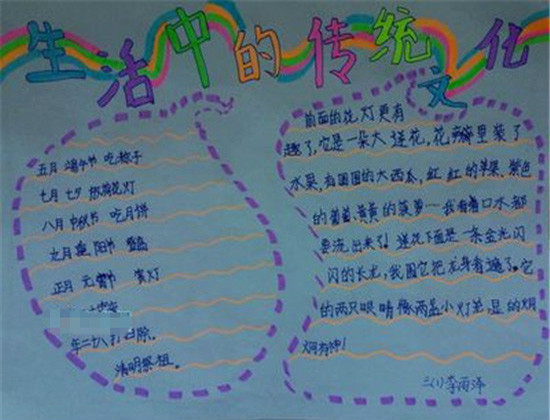 生活中的传统文化
五月 端午节 吃粽子
七月 七夕 放荷花灯
八月 中秋节 吃月饼
九月 重阳节 登高
正月 元宵节 赏灯
年二十八 扫除。
清明祭祖。
前面的花灯更有
趣了,它是一朵大莲花,花瓣里装了
水果,有圆圆的大西瓜,红红的苹果,紫色
的葡萄,黄黄的菠萝……我看着口水都
要流出来了!莲花下面是一条金光闪
闪的长龙,我围它把龙身看遍了。它
的两只眼睛像两盏小灯笼,显的炯
炯有神!
三(1)李雨泽